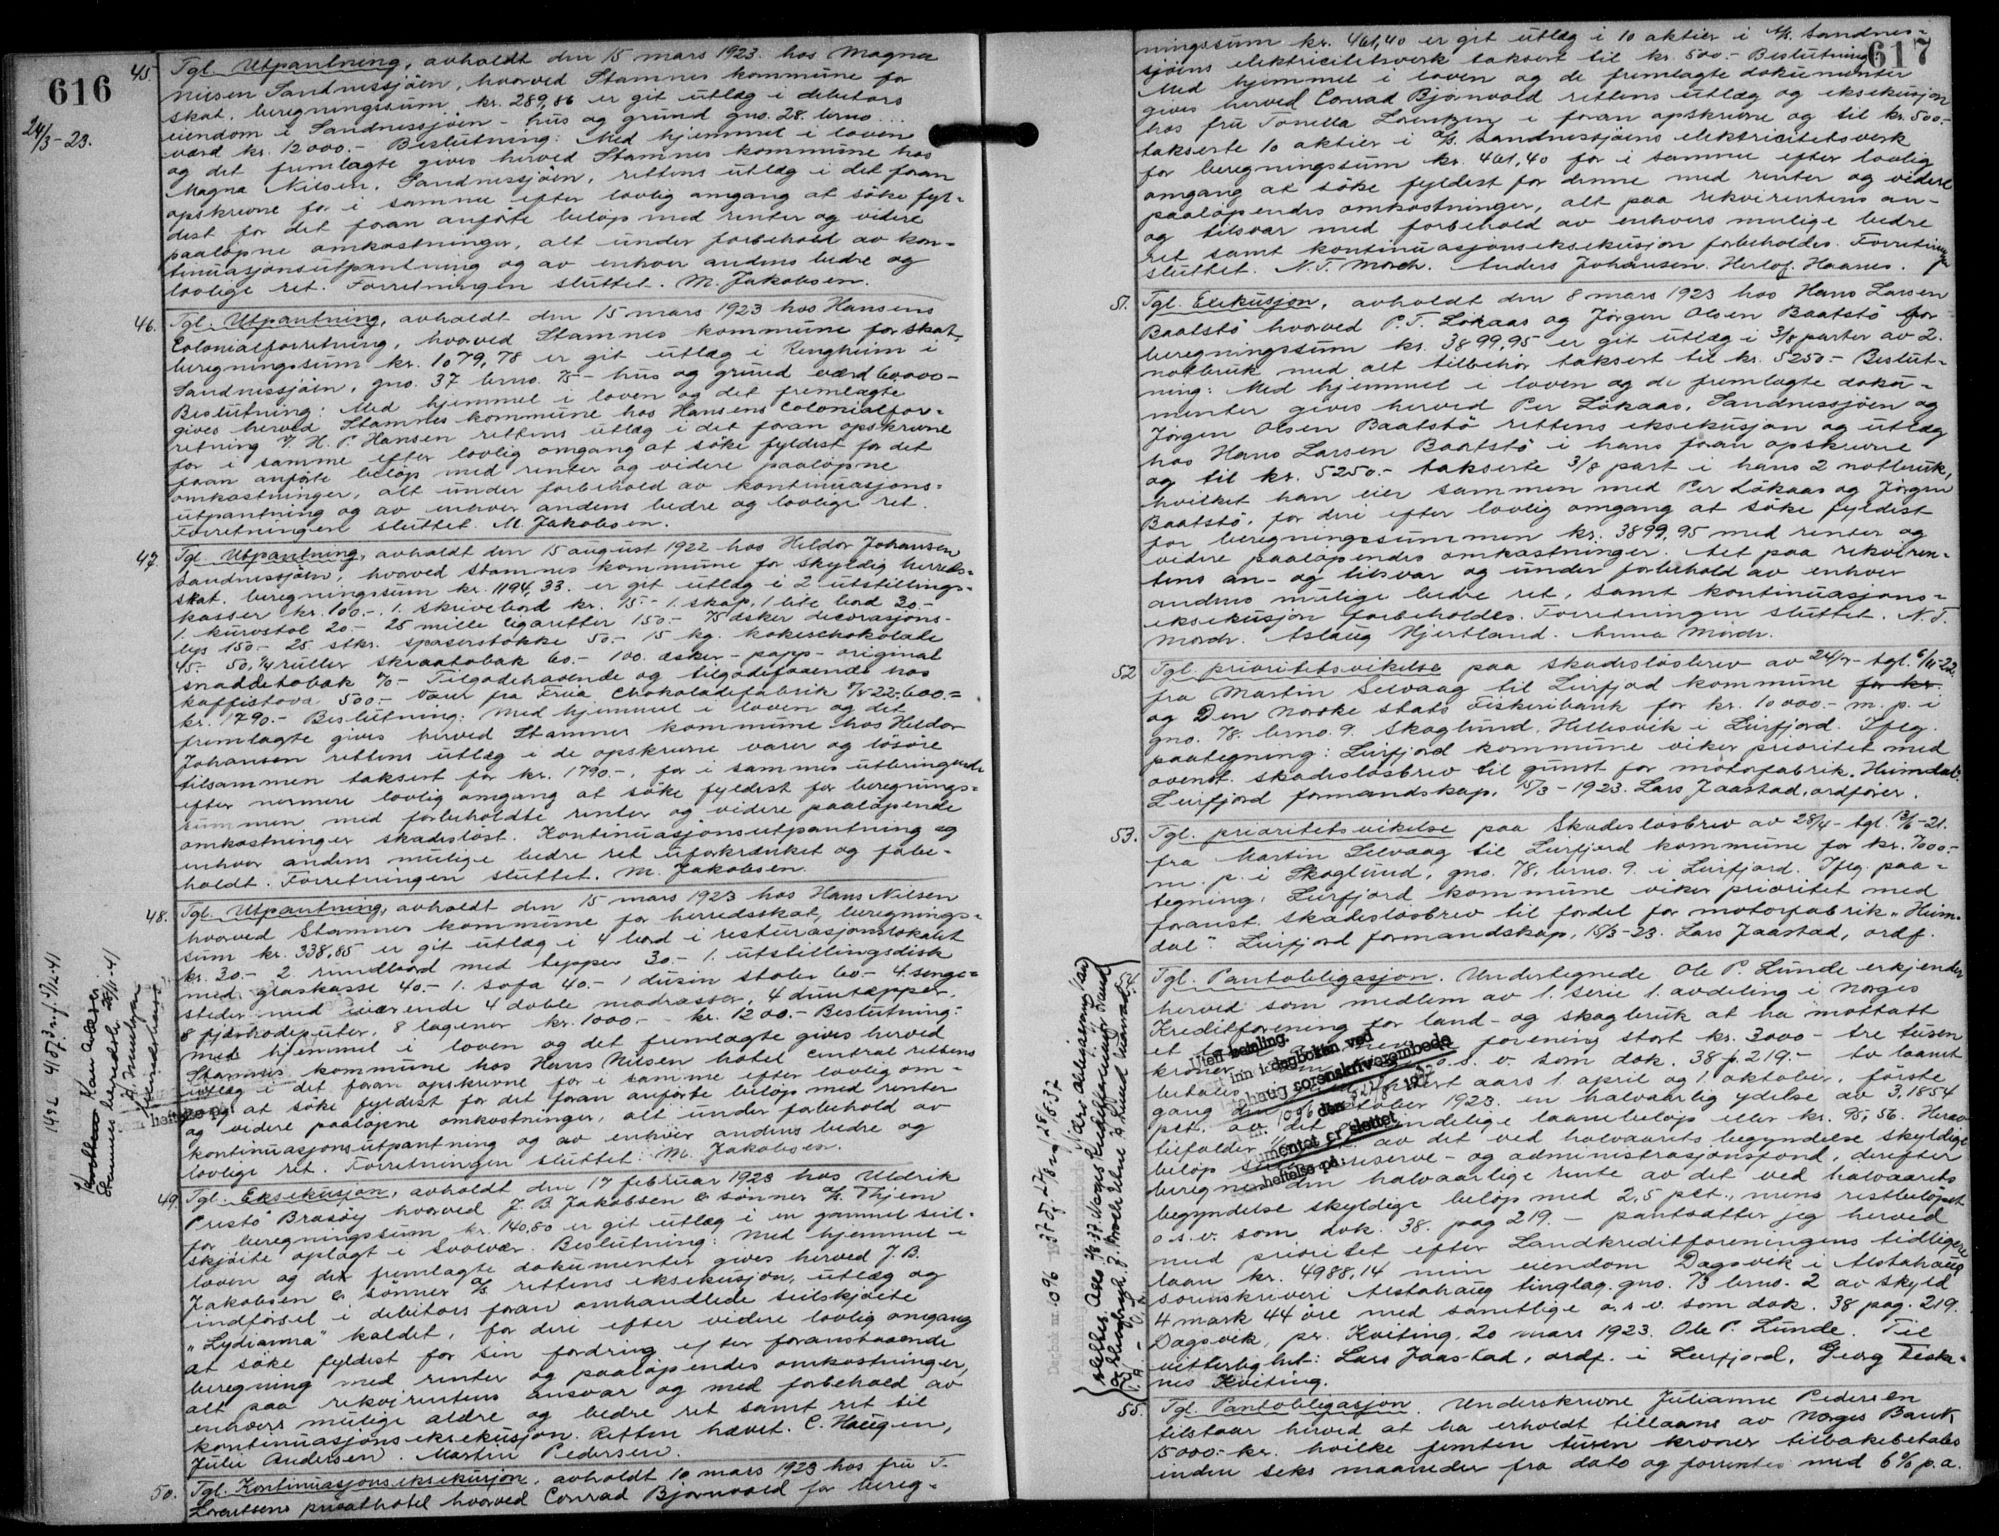 616
24/3-23.
45. Tgl. Utpantning, avholdt den 15 mars 1923 hos Magna
Nilsen Sandnessjöen, hvorved Stamnes kommune for
skat, beregningssum kr. 289,86 er git utlæg i debitors
eiendom i Sandnessjöen - hus og grund gno. 28. brno ...
værd kr. 12000.- Beslutning: Med hjemmel i loven
og det fremlagte gives herved Stamnes kommune hos
Magna Nilsen, Sandnessjöen, rettens utlæg i det foran
opskrevne for i samme efter lovlig omgang at söke fyl-
dest for det foran anförte belöp med renter og videre
paalöpne omkostninger, alt under forbehold av kon-
tinuasjonsutpantning og av enhver andens bedre og
lovlige ret. Forretningen sluttet. M. Jakobsen.
46. Tgl. Utpantning, avholdt den 15 mars 1923 hos Hansens
Colonialforretning, hvorved Stamnes kommune for skat,
beregningssum kr. 1079,78 er git utlæg i Ringheim i
Sandnessjöen, gno. 37 brno. 15 - hus og grund værd 60000-
Beslutning: Med hjemmel i loven og det fremlagte
gives herved Stamnes kommune hos Hansens Colonialfor-
retning v. H. P. Hansen rettens utlæg i det foran opskrevne
for i samme efter lovlig omgang at söke fyldest for det
foran anförte belöp med renter og videre paalöpne
omkostninger, alt under forbehold av kontinuasjons-
utpantning og av enhver andens bedre og lovlige ret.
Forretningen sluttet. M. Jakobsen.
47. Tgl. Utpantning, avholdt den 15 august 1922 hos Hildor Johansen
Sandnessjöen, hvorved Stamnes kommune for skyldig herreds-
skat, beregningssum kr. 1194,33. er git utlæg i 2 utstillings-
kasser kr. 100.-. 1. skrivebord kr. 75.- 1. skap, 1 lite bord 30.-
1. kurvstol 20.- 25 mille cigaretter 150.- 75 æsker decorasjons-
lys 150.- 25. stkr. spaserstokke 50.- 15 kg. kokechokolade
45.- 50,¼ ruller skraatobak 60.- 100. æsker - papp - original
snaddetobak 70- Tilgodehavende og tilgodehavende hos
kaffistova 500.- varer fra Freia Chokoladefabrik 22-600.=
kr. 1790.- Beslutning: Med hjemmel i loven og det
fremlagte gives herved Stamnes kommune hos Hildor
Johansen rettens utlæg i de opskrevne varer og lösöre
tilsammen taksert for kr. 1790.-, for i sammes utbringende
efter nermere lovlig omgang at söke fyldest for beregnings-
summen med forbeholdte renter og videre paalöpende
omkostninger skadeslöst. Kontinuasjonsutpantning og
enhver andens mulige bedre ret uforkrænket og forbe-
holdt. Forretningen sluttet. M. Jakobsen.
48. Tgl. Utpantning, avholdt den 15 mars 1923 hos Hans Nilsen
hvorved Stamnes kommune for herredsskat, beregnings-
sum kr. 338,85 er git utlæg i 4 bord i resturasjonslokalet
kr. 30.- 2. rundbord med tepper 30.- 1. utstillingsdisk
med glaskasse 40.- 1. sofa 40.- 1 dusin stoler 60.- 4. senge-
steder med iværende 4 doble madrasser, 4 duntepper,
8 fjærhodeputer, 8 lagener kr. 1000.- kr. 1200.- Beslutning:
med hjemmel i loven og det fremlagte gives herved
Stamnes kommune hos Hans Nilsen hotel central rettens
utlæg i det foran opskrevne for i samme efter lovlig om-
gang at söke fyldest for det foran anförte belöp med renter
og videre paalöpne omkostninger, alt under forbehold av
kontinuasjonsutpantning og av enhver andens bedre og
lovlige ret. Forretningen sluttet. M. Jakobsen.
49. Tgl. Eksekusjon, avholdt den 17 februar 1923 hos Uldrik
Prestö Brasöy hvorved J. B. Jakobsen & sönner A/S Thjem
for beregningssum kr. 140,80 er git utlæg i en gammel seil-
skjöite oplagt i Svolvær. Beslutning: Med hjemmel i
loven og det fremlagte dokumenter gives herved J. B.
Jakobsen & sönner A/S rettens eksekusjon, utlæg og
indförsel i debitors foran omhandlede seilskjöite
"Lydianna" kaldet, for deri efter videre lovlig omgang
at söke fyldest for sin fordring efter foranstaaende
beregning med renter og paalöpendes omkostninger,
alt paa rekvirentens ansvar og med forbehold av
enhvers mulige ældre og bedre ret samt ret til
kontinuasjonseksekusjon. Retten hævet. C. Haugen,
Julie Andersen. Martin Pedersen.
50. Tgl. Kontinuasjonseksekusjon, avholdt 10 mars 1923 hos fru T.
Lorentsens privathotel hvorved Conrad Bjørnvold for bereg-
1432 41
hefte på
617
ningssum kr. 461,40 er git utlæg i 10 aktier i A/S. Sandnes-
sjöens elektricitetsverk taksert til kr. 500.- Beslutning:
Med hjemmel i loven og de fremlagte dokumenter
gives herved Conrad Bjørnvold rettens utlæg og eksekusjon
hos fru Tonella Lorentzen i foran opskrevne og til kr. 500.-
takserte 10 aktier i A/S. Sandnessjöens elektricitetsverk
for beregningssum kr. 461,40 for i samme efter lovlig
omgang at söke fyldest for denne med renter og videre
paalöpendes omkostninger, alt paa rekvirentens an-
og tilsvar med forbehold av enhvers mulige bedre
ret samt kontinuasjonseksekusjon forbeholdes. Forretningen
sluttet. N. T. Mörch. Anders Johansen. Herlof. Haanes.
51. Tgl. Exekusjon, avholdt den 8 mars 1923 hos Hans Larsen
Baatstö hvorved P. T. Lökaas og Jörgen Olsen Baatstö for
beregningssum kr. 3899,95 er git utlæg i 3/8 parter av 2.
notbruk med alt tilbehör taksert til kr. 5250.- Beslut-
ning: Med hjemmel i loven og de fremlagte doku-
menter gives herved Per Lökaas, Sandnessjöen og
Jörgen Olsen Baatstö rettens eksekusjon og utlæg
hos Hans Larsen Baatstö i hans foran opskrevne
og til kr. 5250.- takserte 3/8 part i hans 2 notbruk,
hvilket han eier sammen med Per Lökaas og Jörgen
Baatstö, for deri efter lovlig omgang at söke fyldest
for beregningssummen kr. 3899,95 med renter og
videre paalöpendes omkostninger. Alt paa rekviren-
tens an- og tilsvar og under forbehold av enhver
andens mulige bedre ret, samt kontinuasjons-
eksekusjon forbeholdes. Forretningen sluttet. N. T.
Mörch. Aslaug Hjertland. Anna Mörch.
52 Tgl. prioritetsvikelse paa skadeslösbrev av 24/7- tgl. 6/11-22
fra Martin Selvaag til Leirfjord kommune for kr.
og Den Norske Stats Fiskeribank for kr. 10000.- m. p. i
gno. 78. brno. 9. Skoglund, Hellesvik i Leirfjord. Iflg.
paategning: Leirfjord kommune viker prioritet med
ovenst. skadeslösbrev til gunst for motorfabrik. Heimdal.
Leirfjord formandskap, 15/3-1923. Lars Jaastad, ordförer.
53. Tgl. prioritetsvikelse paa Skadeslösbrev av 28/4- tgl. -21.
fra Martin Selvaag til Leirfjord kommune for kr. 7000.-
m. p. i Skoglund, gno. 78, brno. 9. i Leirfjord. Iflg. paa-
tegning: Leirfjord kommune viker prioritet med
foranst. skadeslösbrev til fordel for motorfabrik "Heim-
dal". Leirfjord formandskap, 15/3-23. Lars Jaastad, ordf.
54. Tgl. Pantobligasjon. Undertegnede Ole P. Lunde erkjender
herved som medlem av 1. serie 1. avdeling i Norges
Kreditforening for land- og skogbruk at ha mottatt
et laan forening stort kr. 3000 - tre tusen
kroner o. s. v. som dok. 38 p. 219.- to laanet
betales hvert aars 1. april og 1. oktober, förste
gang den oktober 1923. en halvaarlig ydelse av 3,1854
pct. av det oprindelige laanebelöp eller kr. 95,56. Herav
tilfalder av det ved halvaarets begyndelse skyldige
belöp reserve- og administrasjonsfond, derefter
beregnes den halvaarlige rente av det ved halvaarets
begyndelse skyldige belöp med 2,5 pct., mens restbelöpet
o. s. v. som dok. 38. pag 219. - pantsætter jeg herved
med prioritet efter Landkreditforeningens tidligere
laan kr. 4988,14 min eiendom Dagsvik i Alstahaug
sorenskriveri Alstahaug tinglag. gno. 73 brno. 2 av skyld
4 mark 44 öre med samtlige o. s. v. som dok. 38 pag. 219.
Dagsvik, pr. Kviting, 20 mars 1923. Ole P. Lunde. Til
vitterlighet: Lars Jaastad, ordf. i Leirfjord, Georg Teska-
nes Kviting.
Uten betaling.
inn i dagboken ved
sorenskriverembede
den
1096
Dokumentet er slettet
heftelse på
Dagbok nr. 1096
55. Tgl. Pantobligasjon. Underskrevne Julianne Pedersen
tilstaar herved at ha erholdt tillaans av Norges Bank
15000.- kr. hvilke femten tusen kroner tilbakebetales
inden seks maaneder fra dato og forrentes med 6% p. a.